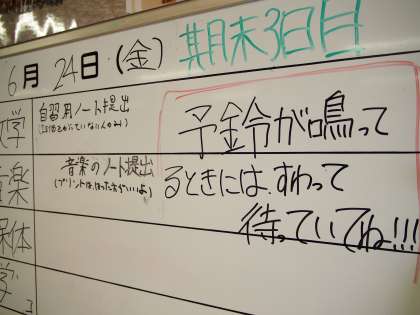 6月24日(金) 期末3日目
学 自習用ノート提出
音楽のノート提出
(プリントは、はった方がいいよ)
予鈴が鳴って
るときには、すわって
待っていてね!!!
楽
保体
学